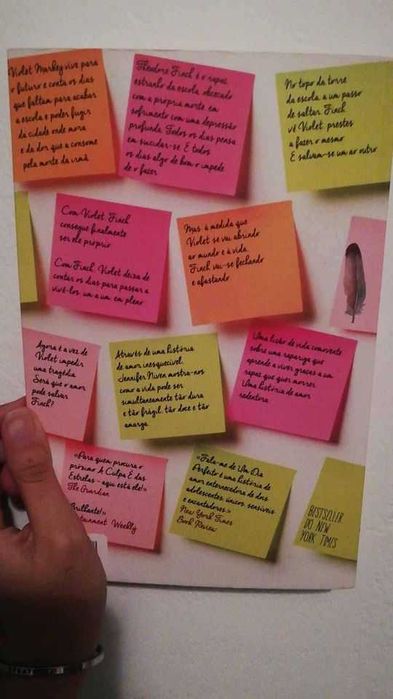 Violet Markey vive para
o futuro e conta os dias
que faltam para acabar
a escola e poder fugir
da cidade onde mora
e da dor que a consome
pela morte da irmã
Theodore Finch é o rapaz
estranho da escola, obcecado
com a própria morte, em
sofrimento com uma depressão
profunda. Todos os dias pensa
em suicidar-se. E todos
os dias algo de bom o impede
de o fazer
No topo da torre
da escola, a um passo
de saltar, Finch
vê Violet prestes
a fazer o mesmo
E salvam-se um ao outro
Com Violet, Finch
consegue finalmente
ser ele próprio
Com Finch, Violet deixa de
contar os dias para passar a
vivê-los, um a um, em pleno
Mas à medida que
Violet se vai abrindo
ao mundo e à vida,
Finch vai-se fechando
e afastando
Agora é a vez de
Violet impedir
uma tragédia
Será que o amor
pode salvar
Finch?
Através de uma história
de amor inesquecível,
Jennifer Niven mostra-nos
como a vida pode ser
simultaneamente tão dura
e tão frágil, tão doce e tão
amarga.
Uma lição de vida comovente
sobre uma rapariga que
aprende a viver graças a um
rapaz que quer morrer
Uma história de amor
redentora
«Para quem procura o
próximo A Culpa É das
Estrelas - aqui está ele!»
The Guardian
Brilhante!»
tainment Weekly
«Fala-me de Um Dia
Perfeito é uma história de
amor enternecedora de dois
adolescentes únicos, sensíveis
e encantadores.»
New York Times
Book Review
BESTSELLER
DO NEW
YORK TIMES